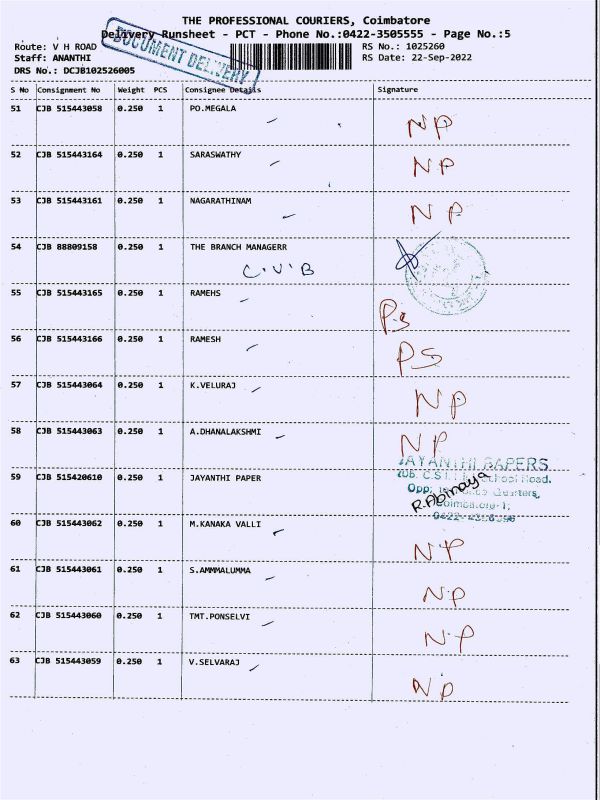 THE PROFESSIONAL COURIERS, Coimbatore
Delivery Runsheet - PCT - Phone No.:0422-3505555 - Page No.:5
DOCUMENT DELIVERY
Route: V H ROAD RS No.: 1025260
Staff: ANANTHI RS Date: 22-Sep-2022
DRS No.: DCJB102526005
S No Consignment No Weight PCS Consignee Details Signature
51 CJB 515443058 0.250 1 PO.MEGALA NP
52 CJB 515443164 0.250 1 SARASWATHY NP
53 CJB 515443161 0.250 1 NAGARATHINAM NP
54 CJB 88809158 0.250 1 THE BRANCH MANAGERR
C.V.B
55 CJB 515443165 0.250 1 RAMEHS PS
56 CJB 515443166 0.250 1 RAMESH PS
57 CJB 515443064 0.250 1 K.VELURAJ NP
58 CJB 515443063 0.250 1 A.DHANALAKSHMI NP
JAYANTHI PAPERS
59 CJB 515420610 0.250 1 JAYANTHI PAPER
School Road.
Opp: Quarters,
R.Abinaya
60 CJB 515443062 0.250 1 M.KANAKA VALLI NP
61 CJB 515443061 0.250 1 S.AMMMALUMMA NP
62 CJB 515443060 0.250 1 TMT.PONSELVI NP
63 CJB 515443059 0.250 1 V.SELVARAJ NP